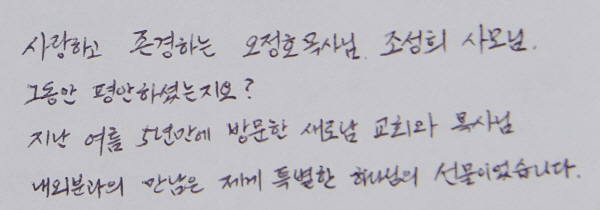 사랑하고 존경하는 오정호 목사님. 조성희 사모님.
그동안 평안하셨는지요?
지난 여름 5년만에 방문한 새로남 교회와 목사님
내외분과의 만남은 제게 특별한 하나님의 선물이었습니다.